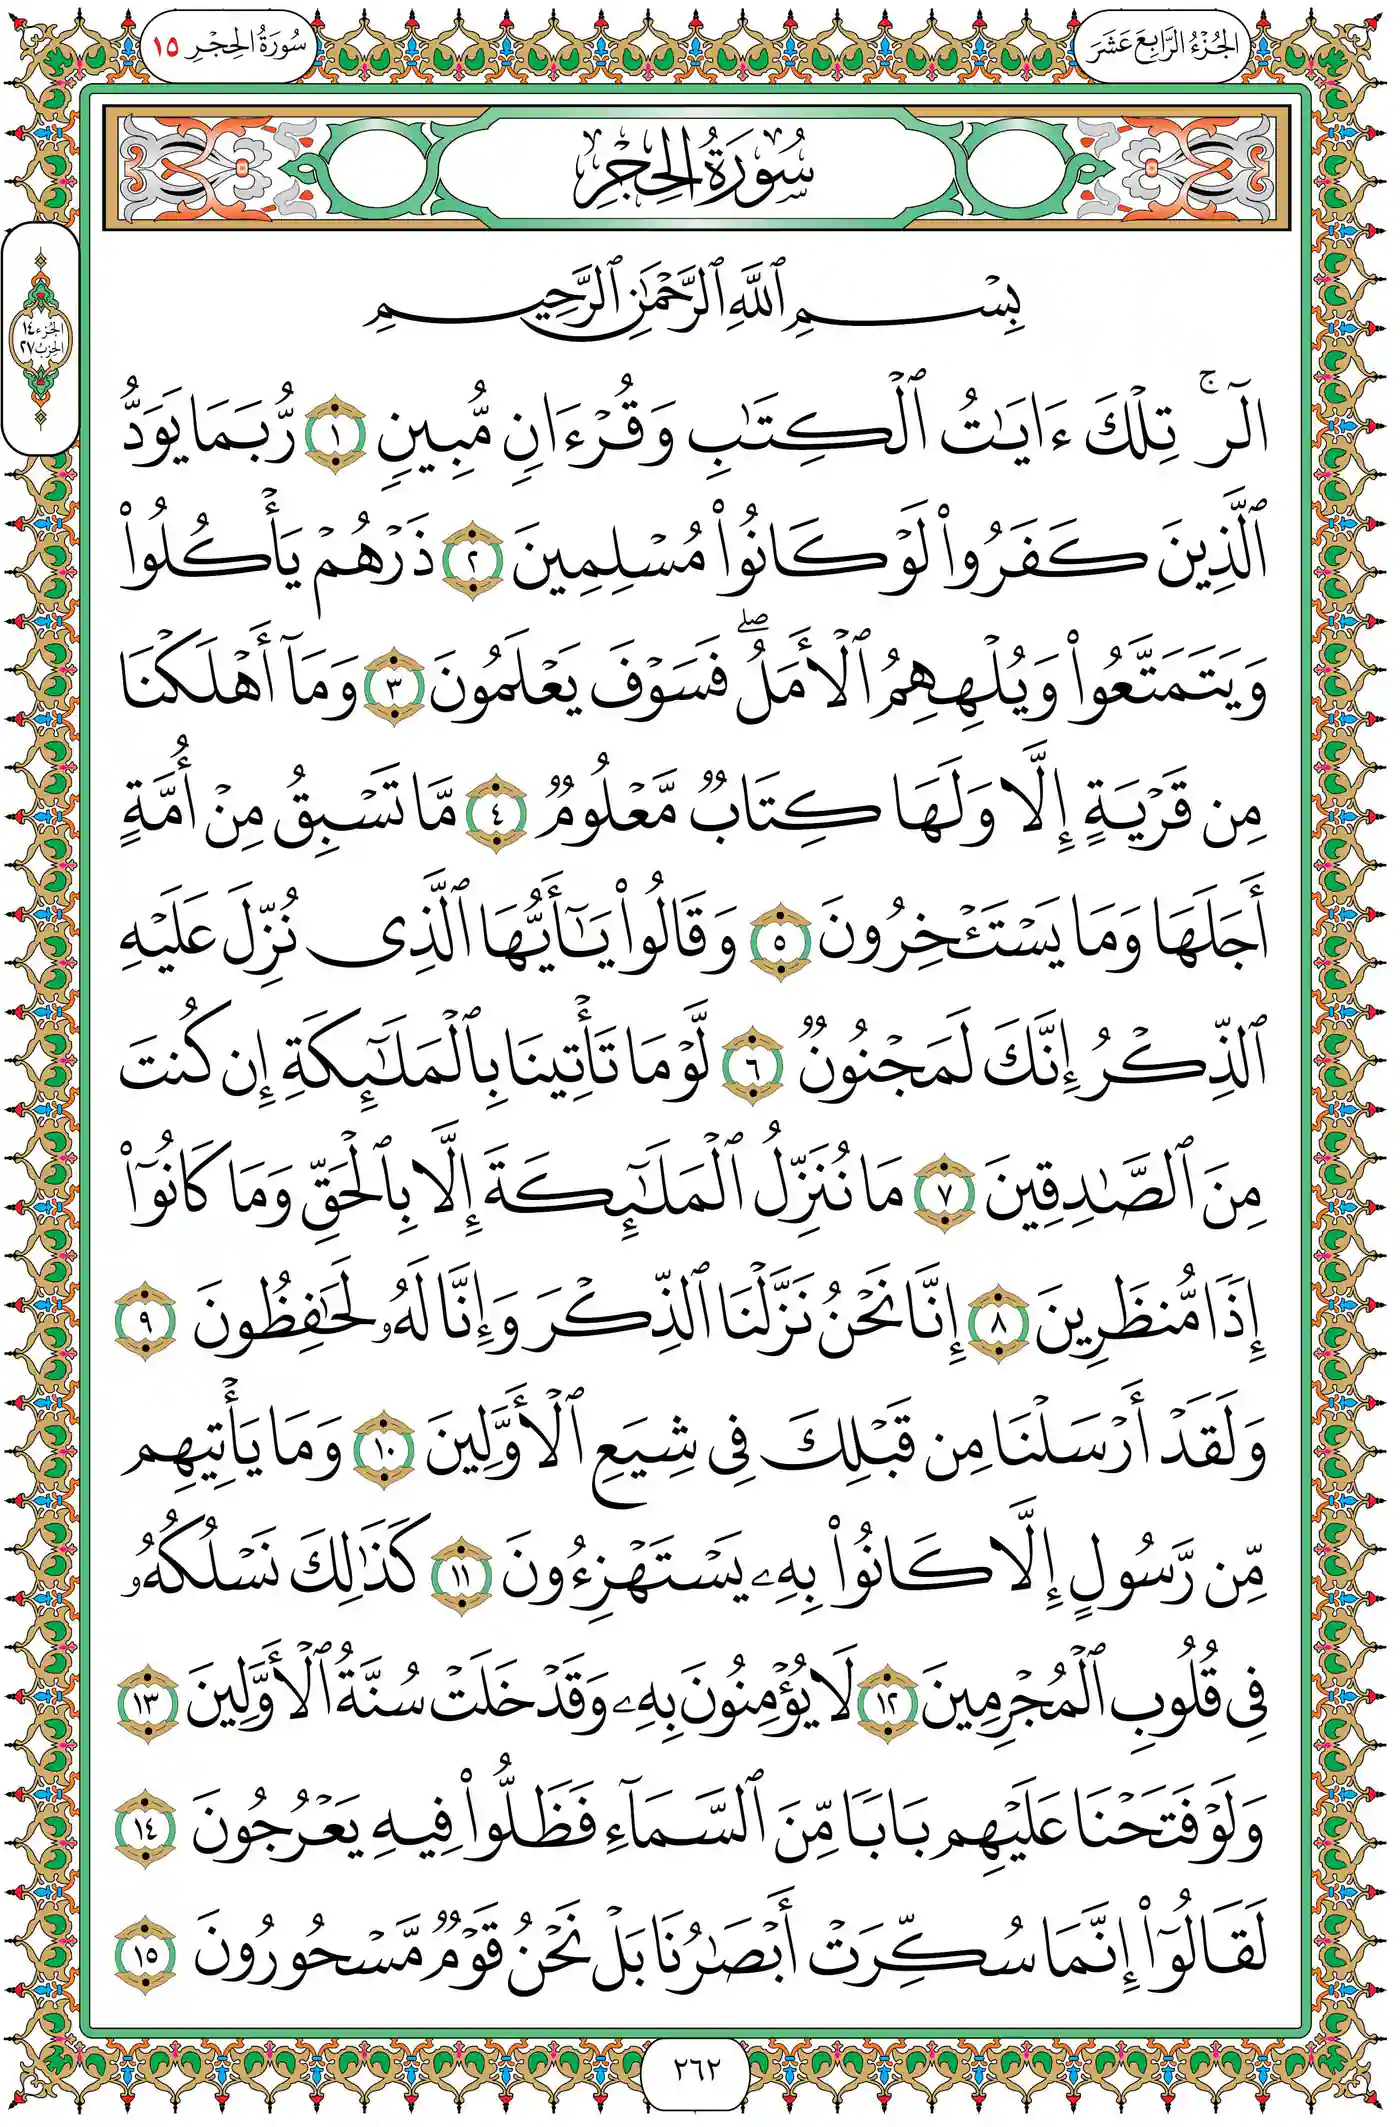 الجُزْءُ الرَّابِعَ عَشَرَ
سُورَةُ الحِجْرِ ١٥
سُورَةُ الحِجْرِ
الجزء ١٤
الحزب ٢٧
بِسْمِ ٱللَّهِ ٱلرَّحْمَٰنِ ٱلرَّحِيمِ
الٓرۚ تِلْكَ ءَايَٰتُ ٱلْكِتَٰبِ وَقُرْءَانٍ مُّبِينٍ ١ رُّبَمَا يَوَدُّ
ٱلَّذِينَ كَفَرُوا۟ لَوْ كَانُوا۟ مُسْلِمِينَ ٢ ذَرْهُمْ يَأْكُلُوا۟
وَيَتَمَتَّعُوا۟ وَيُلْهِهِمُ ٱلْأَمَلُۖ فَسَوْفَ يَعْلَمُونَ ٣ وَمَآ أَهْلَكْنَا
مِن قَرْيَةٍ إِلَّا وَلَهَا كِتَابٌ مَّعْلُومٌ ٤ مَّا تَسْبِقُ مِنْ أُمَّةٍ
أَجَلَهَا وَمَا يَسْتَـْٔخِرُونَ ٥ وَقَالُوا۟ يَٰٓأَيُّهَا ٱلَّذِى نُزِّلَ عَلَيْهِ
ٱلذِّكْرُ إِنَّكَ لَمَجْنُونٌ ٦ لَّوْ مَا تَأْتِينَا بِٱلْمَلَٰٓئِكَةِ إِن كُنتَ
مِنَ ٱلصَّٰدِقِينَ ٧ مَا نُنَزِّلُ ٱلْمَلَٰٓئِكَةَ إِلَّا بِٱلْحَقِّ وَمَا كَانُوٓا۟
إِذًا مُّنظَرِينَ ٨ إِنَّا نَحْنُ نَزَّلْنَا ٱلذِّكْرَ وَإِنَّا لَهُۥ لَحَٰفِظُونَ ٩
وَلَقَدْ أَرْسَلْنَا مِن قَبْلِكَ فِى شِيَعِ ٱلْأَوَّلِينَ ١٠ وَمَا يَأْتِيهِم
مِّن رَّسُولٍ إِلَّا كَانُوا۟ بِهِۦ يَسْتَهْزِءُونَ ١١ كَذَٰلِكَ نَسْلُكُهُۥ
فِى قُلُوبِ ٱلْمُجْرِمِينَ ١٢ لَا يُؤْمِنُونَ بِهِۦ وَقَدْ خَلَتْ سُنَّةُ ٱلْأَوَّلِينَ ١٣
وَلَوْ فَتَحْنَا عَلَيْهِم بَابًا مِّنَ ٱلسَّمَآءِ فَظَلُّوا۟ فِيهِ يَعْرُجُونَ ١٤
لَقَالُوٓا۟ إِنَّمَا سُكِّرَتْ أَبْصَٰرُنَا بَلْ نَحْنُ قَوْمٌ مَّسْحُورُونَ ١٥
٢٦٢